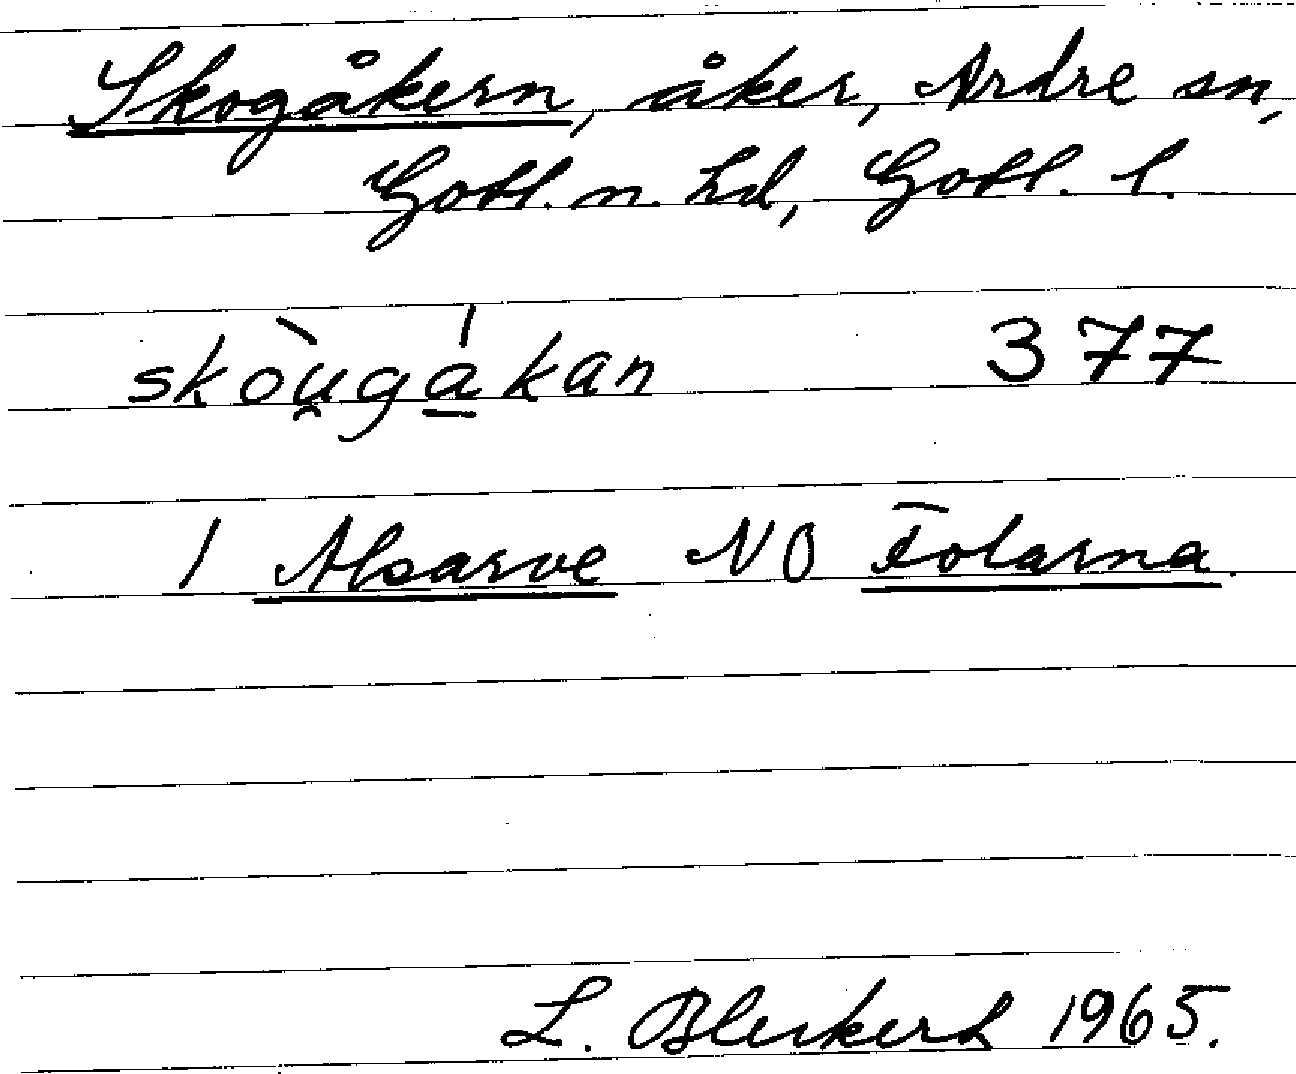 Skogåkern, åker, Ardre sn,
Gotl. n. hd, Gotl. l.
skòu̯gá̱kan 377
1 Alsarve NO Tolarna.
L. Bleikert 1965.